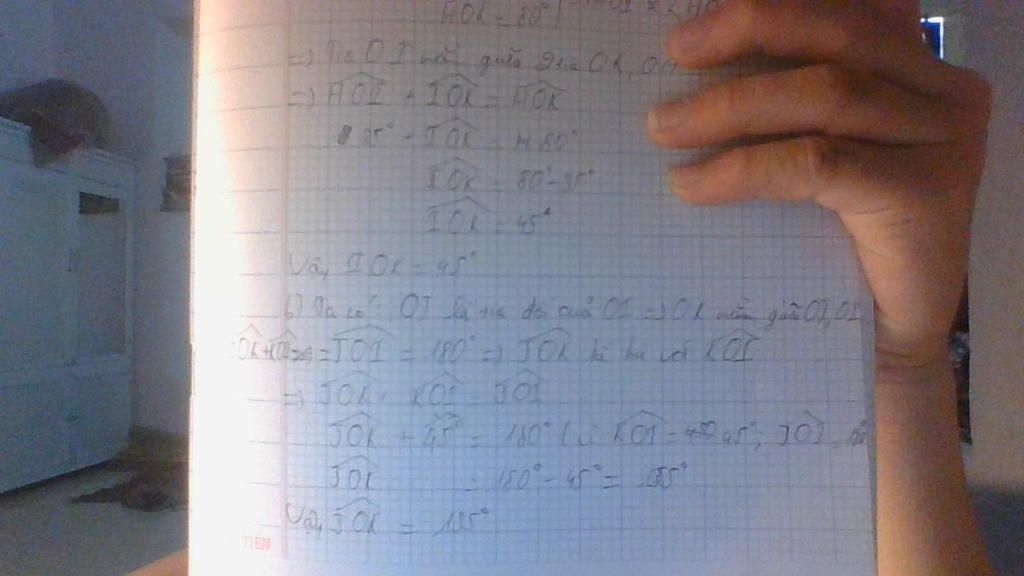 HOK = 80°
=) Tia OI nằm giữa 2 tia OK, OH
=) HOI + IOK = HOK
35° + IOK = 80°
IOK = 80° - 35°
IOK = 45°
Vậy IOK = 45°
b) Ta có: OJ là tia đối của OI =) OK nằm giữa OJ, OI
JOK + KOI = JOI = 180° =) JOK kề bù với KOI
=) JOK + KOI = JOI
JOK + 45° = 180° (vì KOI = 45°; JOI
JOK = 180° - 45° = 135°
Vậy JOK = 135°
TIEN